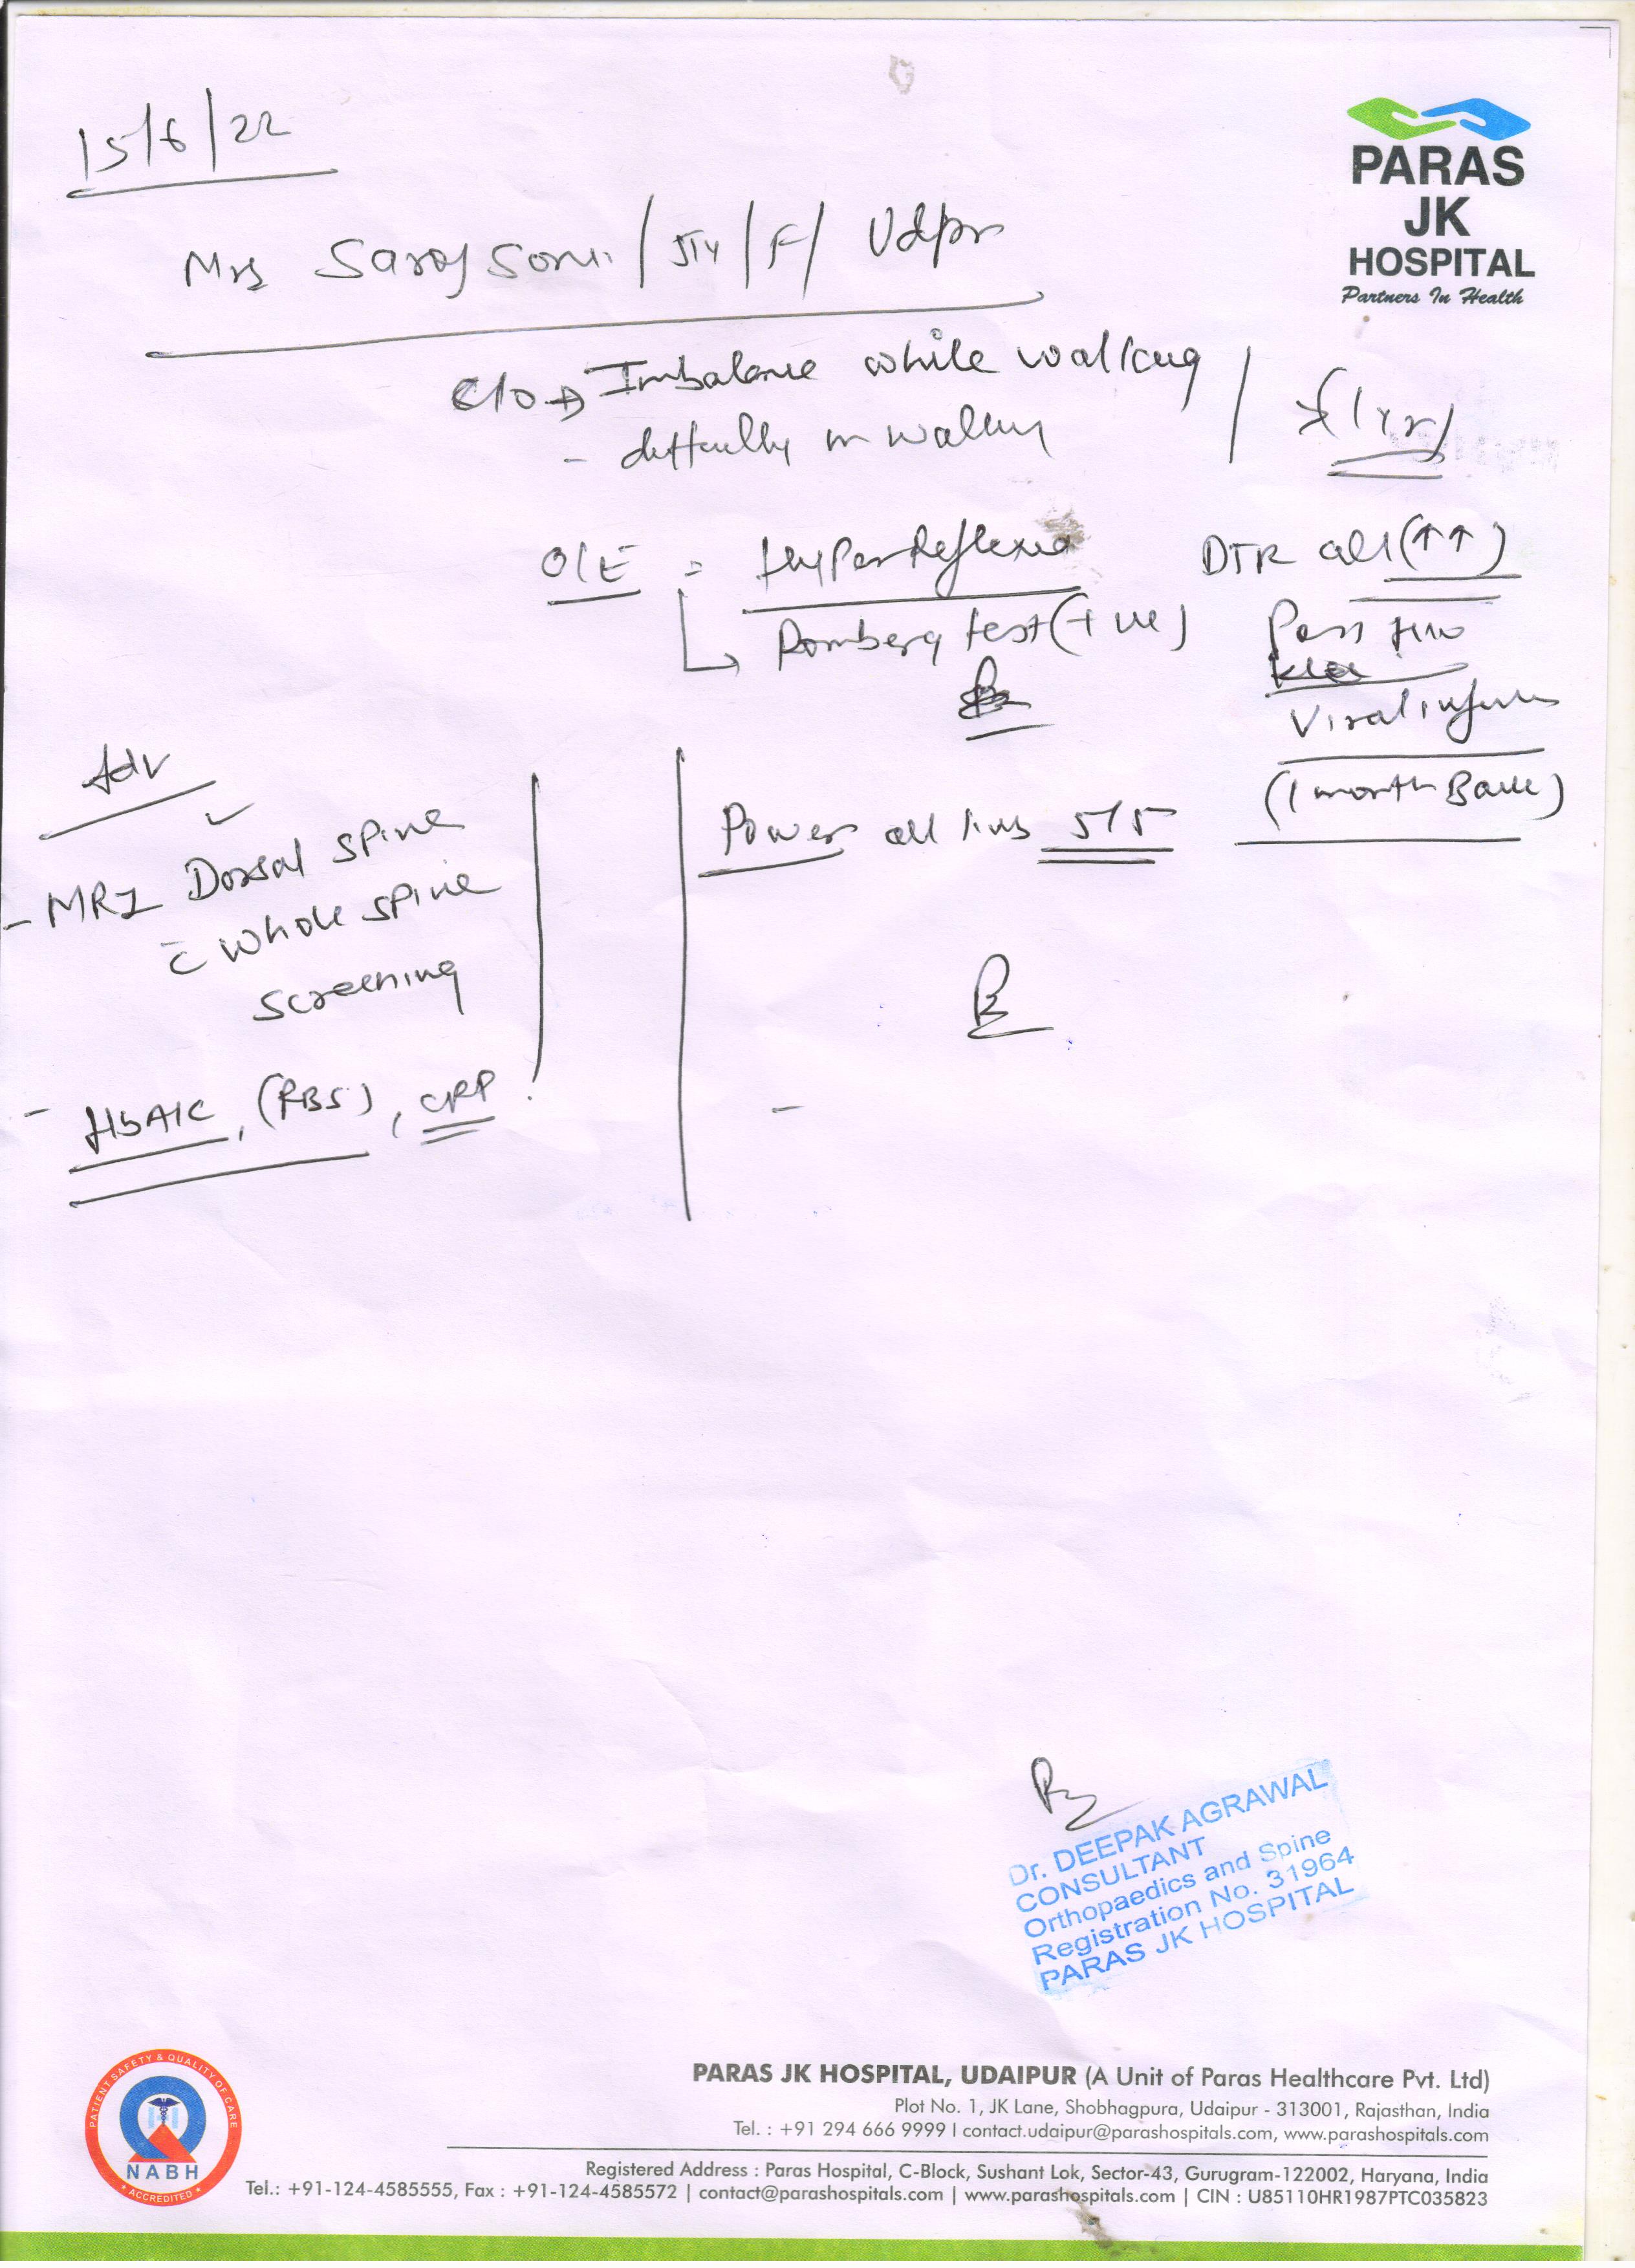 15/6/22
PARAS
JK
HOSPITAL
Partners In Health
Mrs Saroj Soni / 51y / F / Udpr
C/O → Imbalance while walking
- difficulty in walking
x 1 yr
O/E = HyperReflexia
DTR all (↑↑)
Romberg test (+ve)
Past H/o
Viral infection
(1 month Back)
Adv
Power all limbs 5/5
- MRI Dorsal spine
c̄ whole spine
screening
Rx
- HbA1C, (RBS), CRP
Dr. DEEPAK AGRAWAL
CONSULTANT
Orthopaedics and Spine
Registration No. 31964
PARAS JK HOSPITAL
PATIENT SAFETY & QUALITY OF CARE
NABH
ACCREDITED
PARAS JK HOSPITAL, UDAIPUR (A Unit of Paras Healthcare Pvt. Ltd)
Plot No. 1, JK Lane, Shobhagpura, Udaipur - 313001, Rajasthan, India
Tel. : +91 294 666 9999 | contact.udaipur@parashospitals.com, www.parashospitals.com
Registered Address : Paras Hospital, C-Block, Sushant Lok, Sector-43, Gurugram-122002, Haryana, India
Tel.: +91-124-4585555, Fax : +91-124-4585572 | contact@parashospitals.com | www.parashospitals.com | CIN : U85110HR1987PTC035823